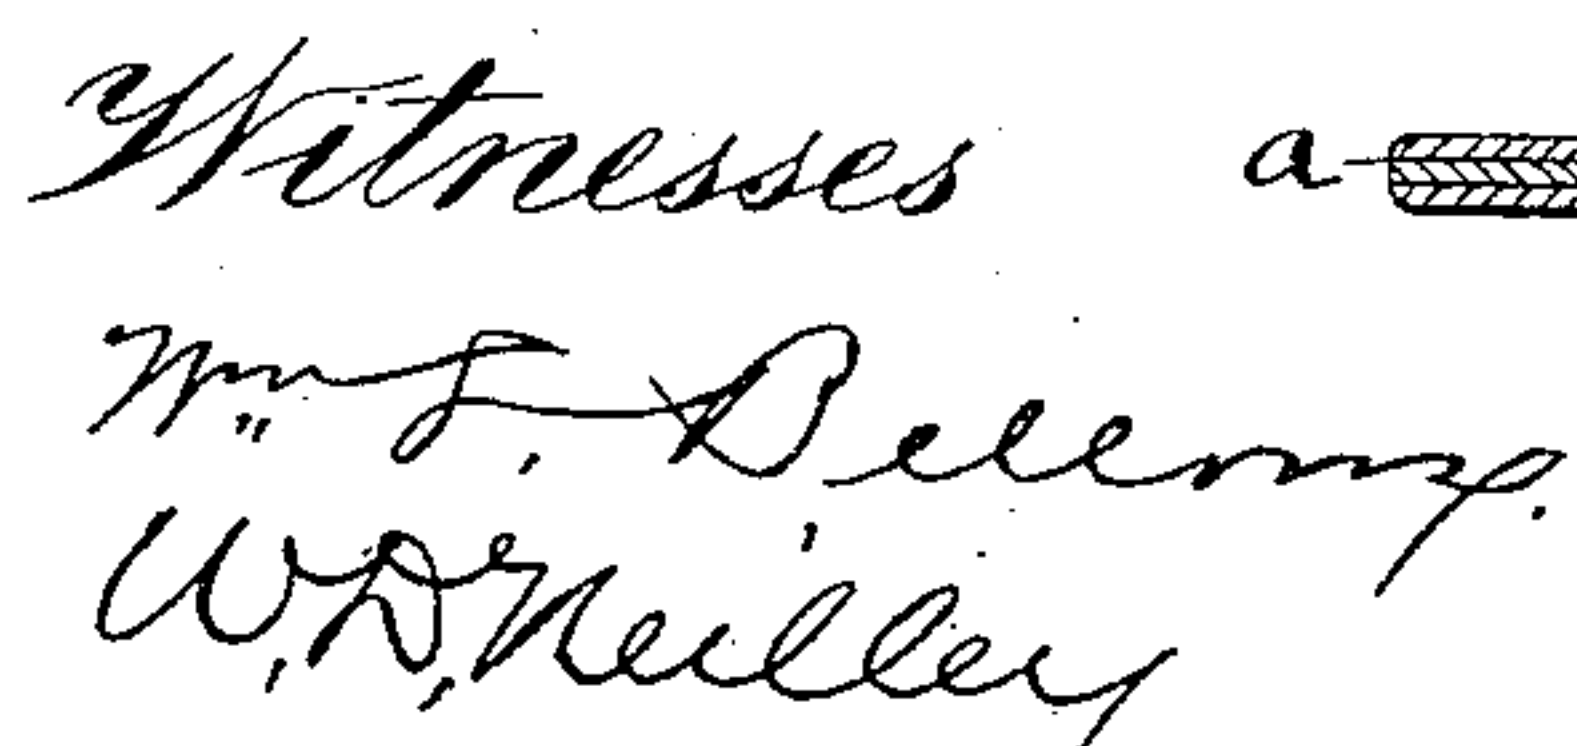 Witnesses a
Wm L. Bellamy.
W. D. Neilley